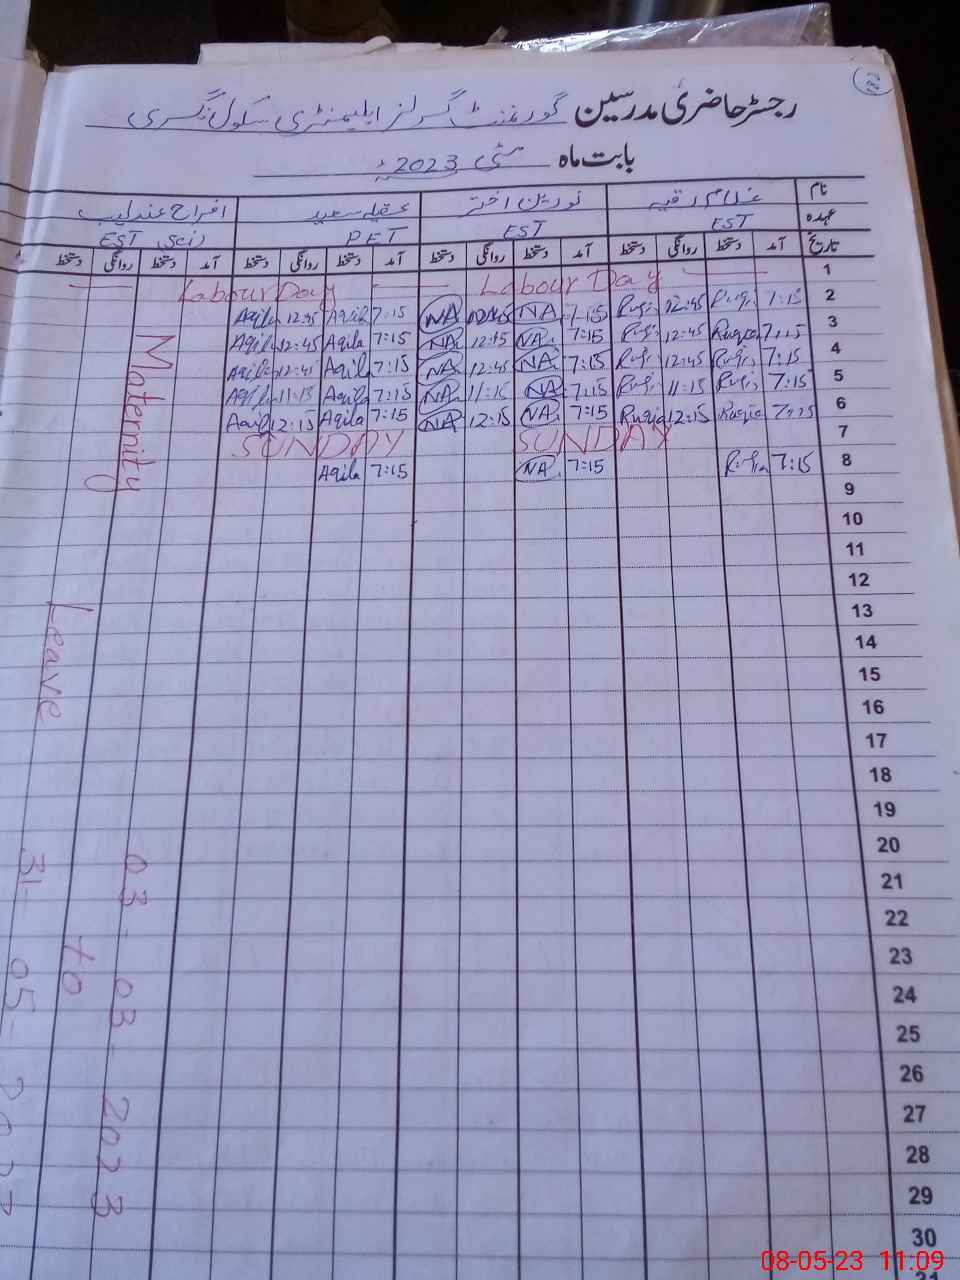 182
رجسٹر حاضری مدرسین گورنمنٹ گرلز ایلیمنٹری سکول
بابت ماہ مئی 2023ء
نام غلام رقیہ نورین اختر عقیلہ سعید افراح عندلیب
عہدہ EST EST PET EST (Sci)
تاریخ آمد دستخط روانگی دستخط آمد دستخط روانگی دستخط آمد دستخط روانگی دستخط آمد دستخط روانگی دستخط
1 Labour Day Labour Day
2 7:15 Ruqi 12:45 Ruqi 7:15 NA 12:45 NA 7:15 Aqila 12:45 Aqila
3 7:15 Ruqia 12:45 Ruqi 7:15 NA 12:45 NA 7:15 Aqila 12:45 Aqila
4 7:15 Ruqi 12:45 Ruqi 7:15 NA 12:45 NA 7:15 Aqila 12:45 Aqila
5 7:15 Ruqi 11:15 Ruqi 7:15 NA 11:15 NA 7:15 Aqila 11:15 Aqila
6 7:15 Ruqia 12:15 Ruqia 7:15 NA 12:15 NA 7:15 Aqila 12:15 Aqila
7 SUNDAY SUNDAY
8 7:15 Ruqia 7:15 NA 7:15 Aqila
9
10
11
12
13
14
15
16
17
18
19
20
21
22
23
24
25
26
27
28
29
30
Maternity
Leave
03-03-2023
to
31-05-2023
08-05-23 11:09